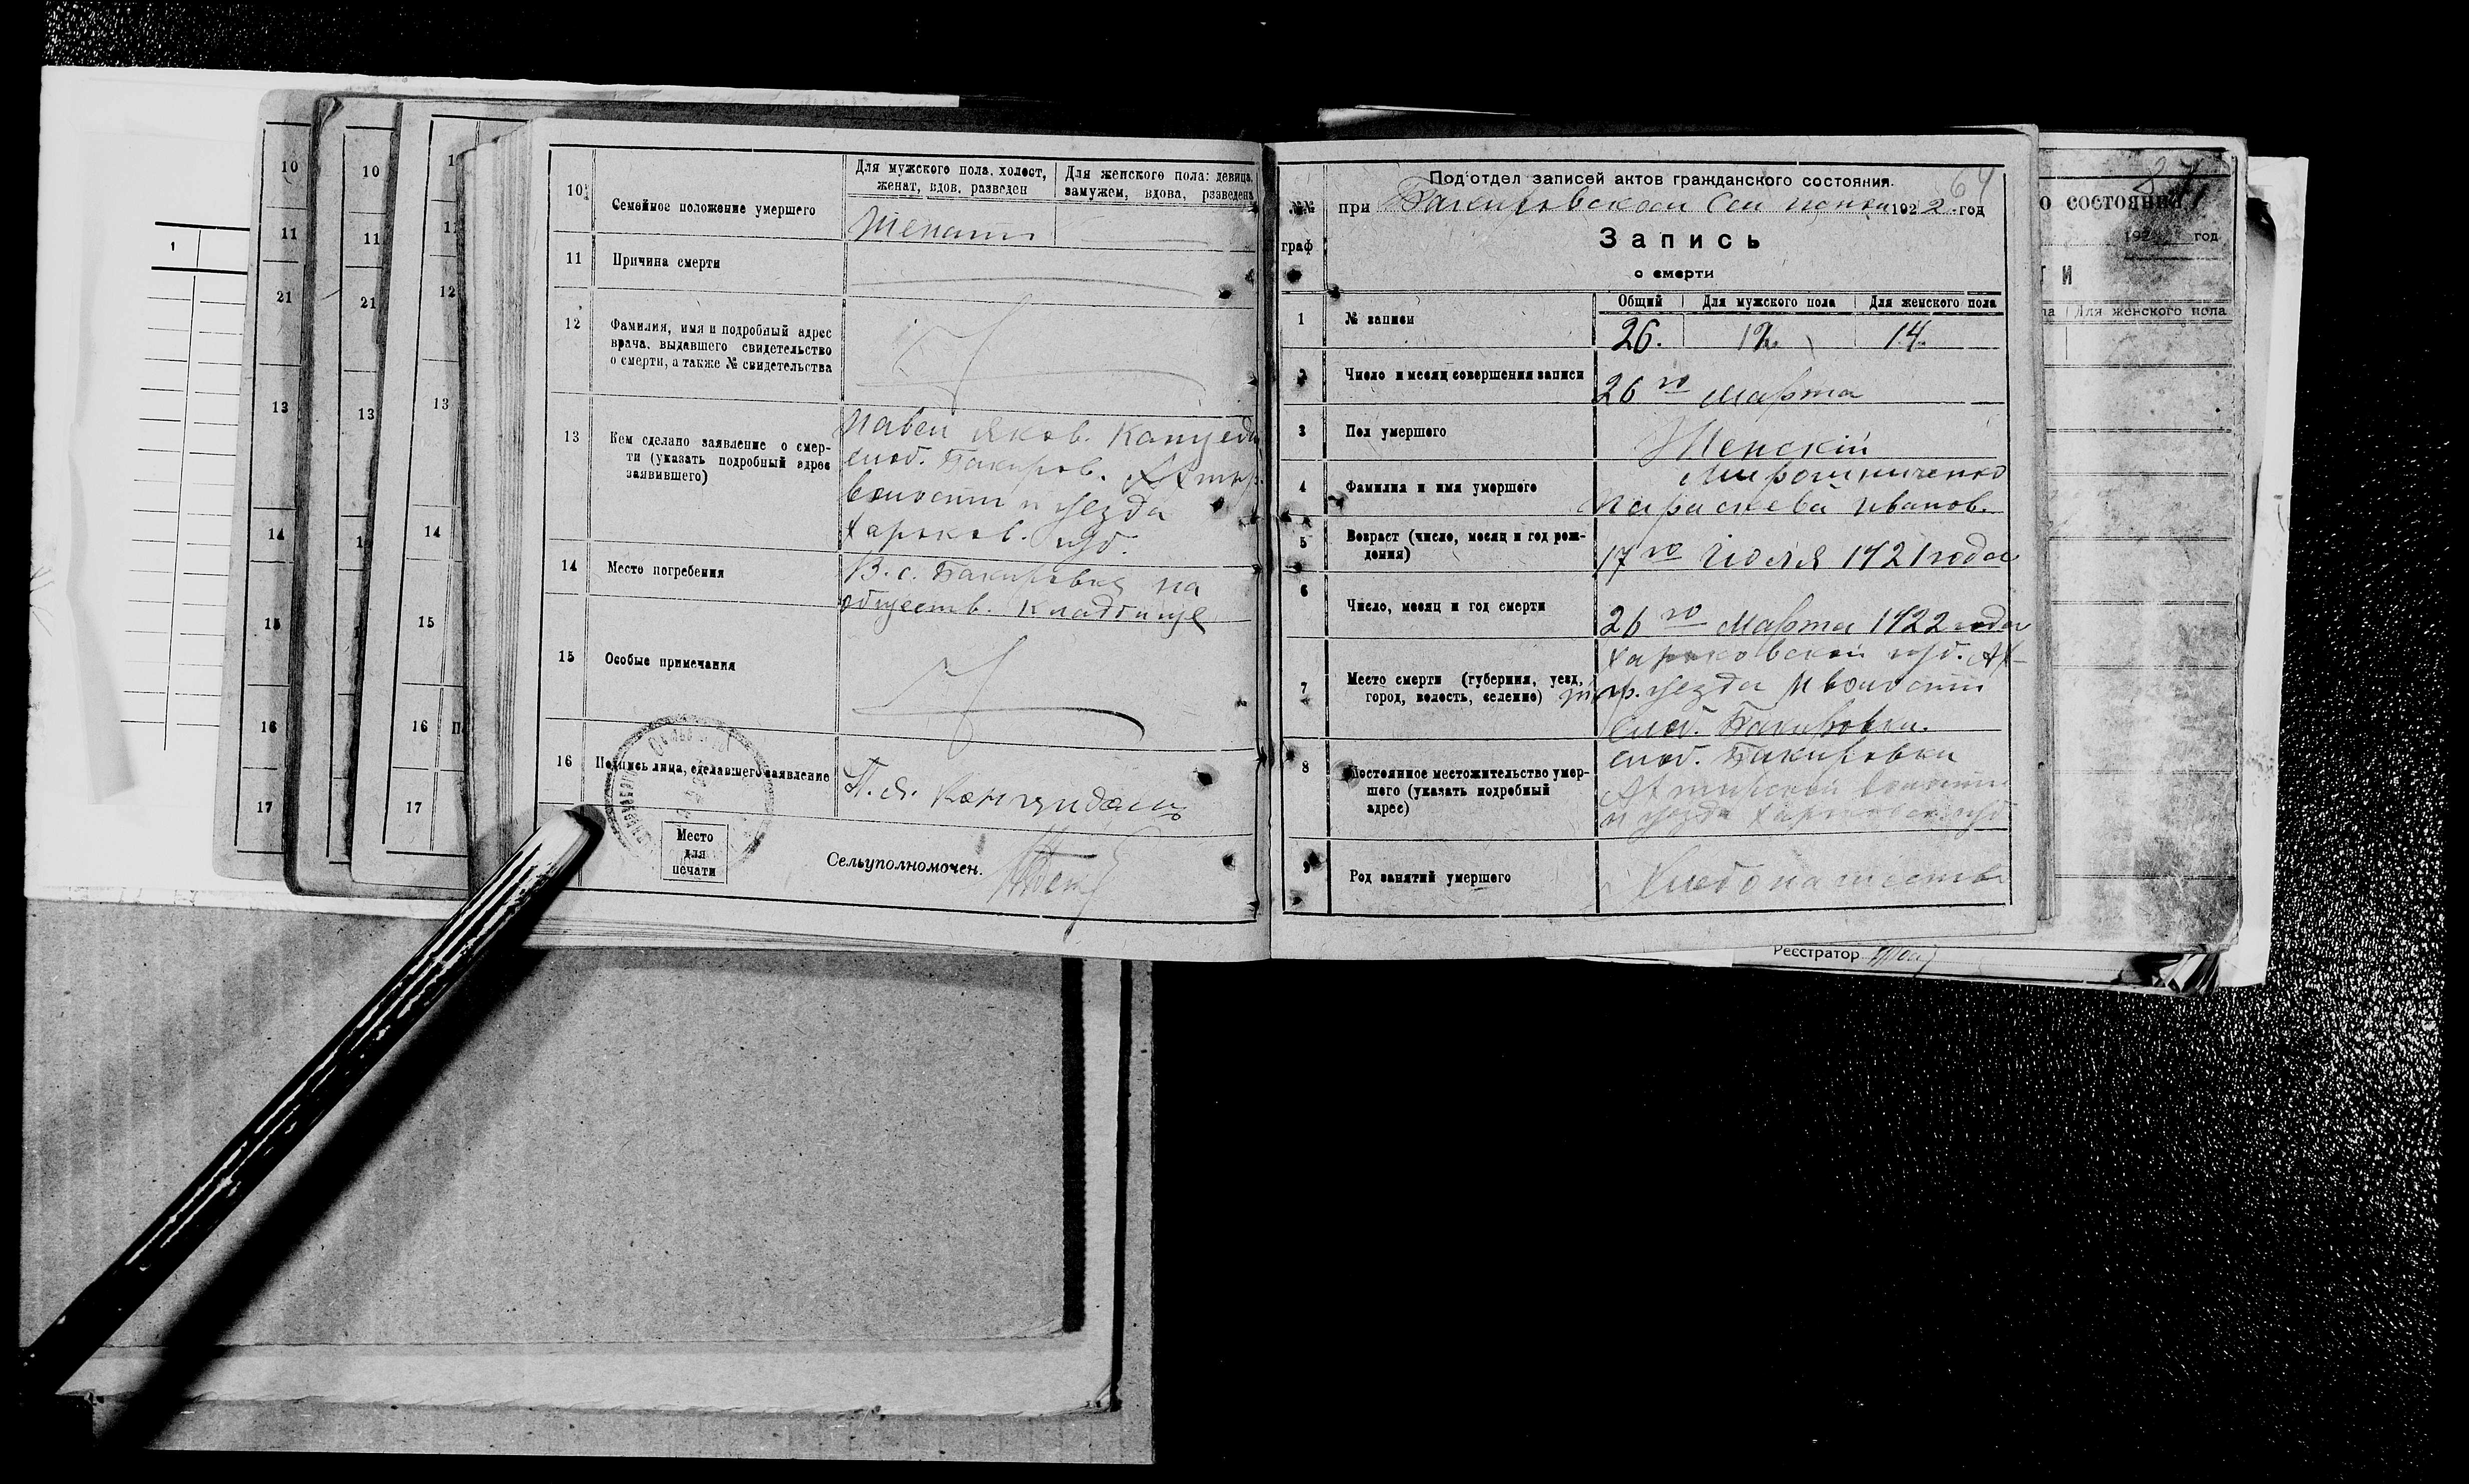 10
11
21
13
14
15
16
17
10
11
21
13
12
13
14
15
16
17
1
10
Семейное положение умершего
Для мужского пола, холост,
женат, вдов, разведен
Для женского пола: девица,
замужем, вдова, разведена
Женат
11
Причина смерти
12
Фамилия, имя и подробный адрес
врача, выдавшего свидетельство
о смерти, а также № свидетельства
13
Кем сделано заявление о смер-
ти (указать подробный адрес
заявившего)
Павел Яков.
слоб. Бакиров. Ахтыр.
волости и уезда
Харьков. губ.
14
Место погребения
В. с. Бакировка на
обществ. кладбище
15
Особые примечания
16
Подпись лица, сделавшего заявление
П. Я.
Место
для
печати
Сельуполномочен.
64
Под'отдел записей актов гражданского состояния.
№№
граф
при Бакировском 1922 год
Запись
о смерти
1
№ записи
Общий
Для мужского пола
Для женского пола
26.
12.
14.
2
Число и месяц совершения записи
26го Марта
3
Пол умершего
Женскій
4
Фамилия и имя умершего
Мирошниченко
Параскева Иванов.
5
Возраст (число, месяц и год рож-
дения)
17го Июля 1921 года
6
Число, месяц и год смерти
26го Марта 1922 года
7
Место смерти (губерния, уезд,
город, волость, селение)
Харьковской губ. Ах-
тыр. уезда и волости
слоб. Бакировки.
8
Постоянное местожительство умер-
шего (указать подробный
адрес)
слоб. Бакировки
Ахтырской волости
и уезда Харьковск. губ.
9
Род занятий умершего
Хлебопашество
87
о состояния
192 год
Т И
Для женского пола
Реєстратор